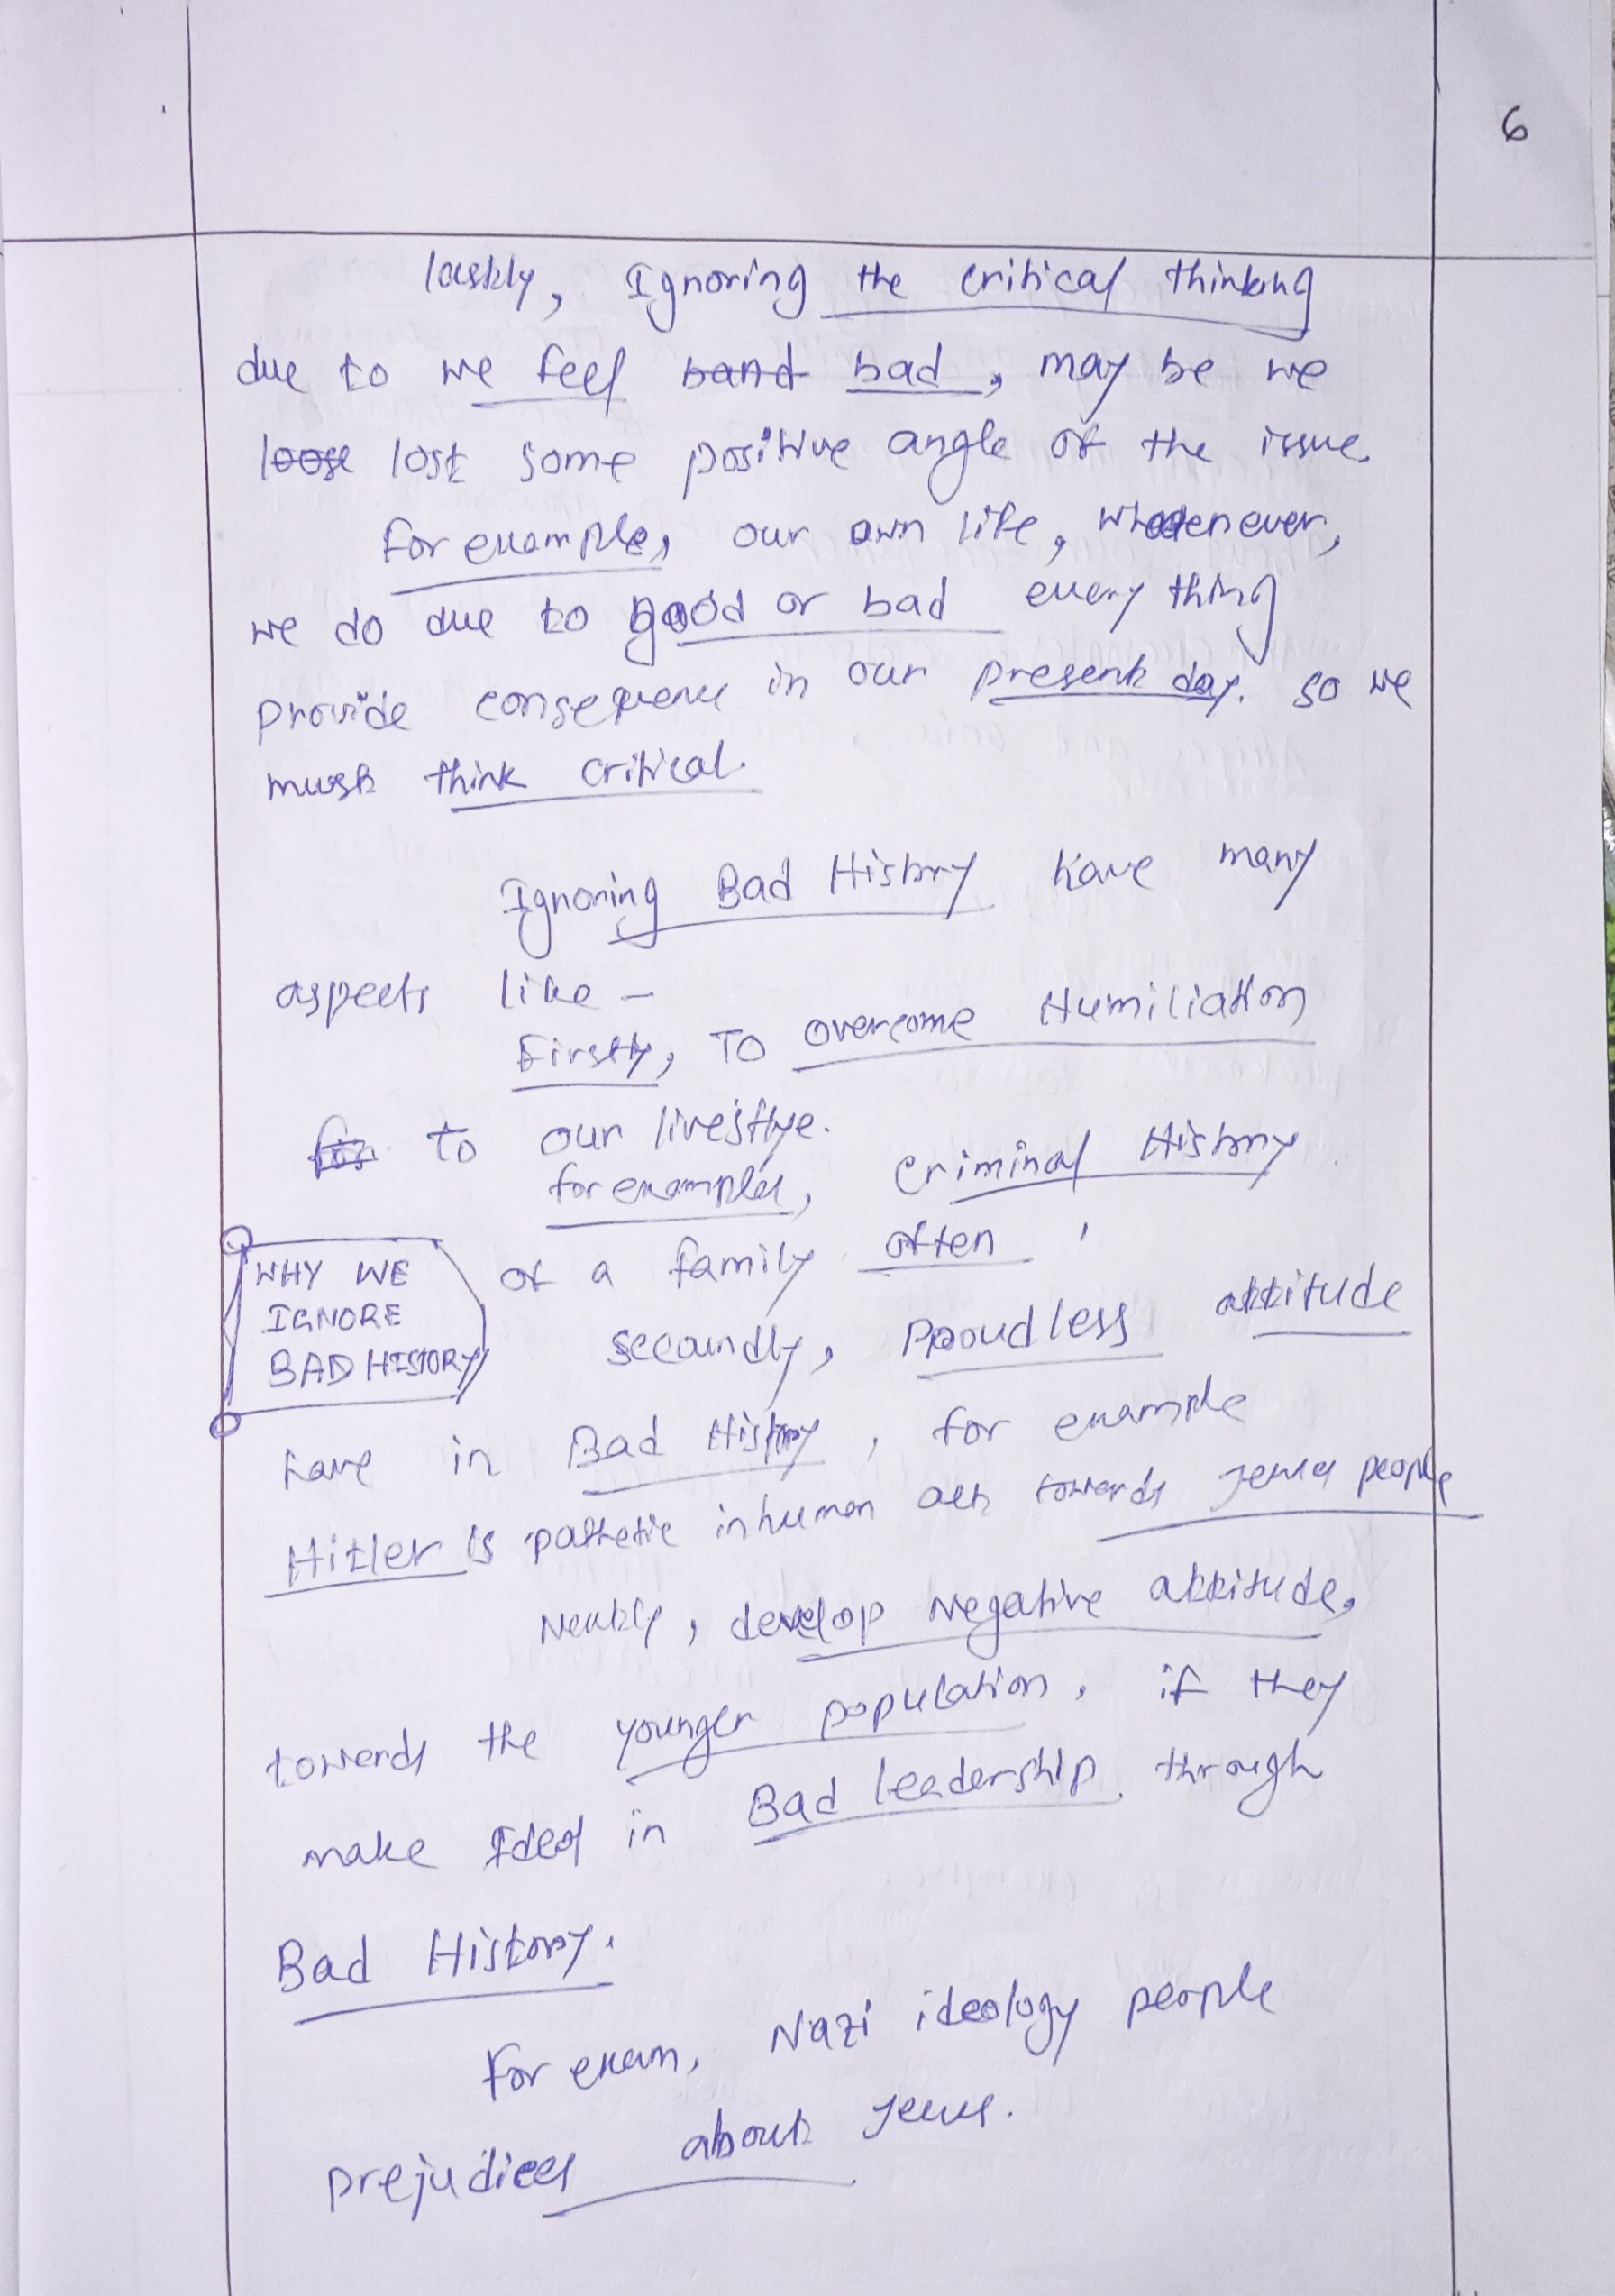 6
lastly, Ignoring the critical thinking
due to we feel band bad, may be we
loose lost some positive angle of the issue.
for example, our own life, whenever,
we do due to good or bad every thing
provide consequence in our present day. so we
must think critical.
Ignoring Bad History have many
aspects like -
Firstly, To overcome Humiliation
for to our livestlye.
for examples, criminal History
of a family often,
WHY WE
IGNORE
BAD HISTORY
secoundly, Proudless attitude
have in Bad History, for example
Hitler is pathetic inhuman act towards Jews people
Nextly, develop Negative attitude,
towards the younger population, if they
make Ideal in Bad leadership, through
Bad History.
For exam, Nazi ideology people
prejudices about Jews.